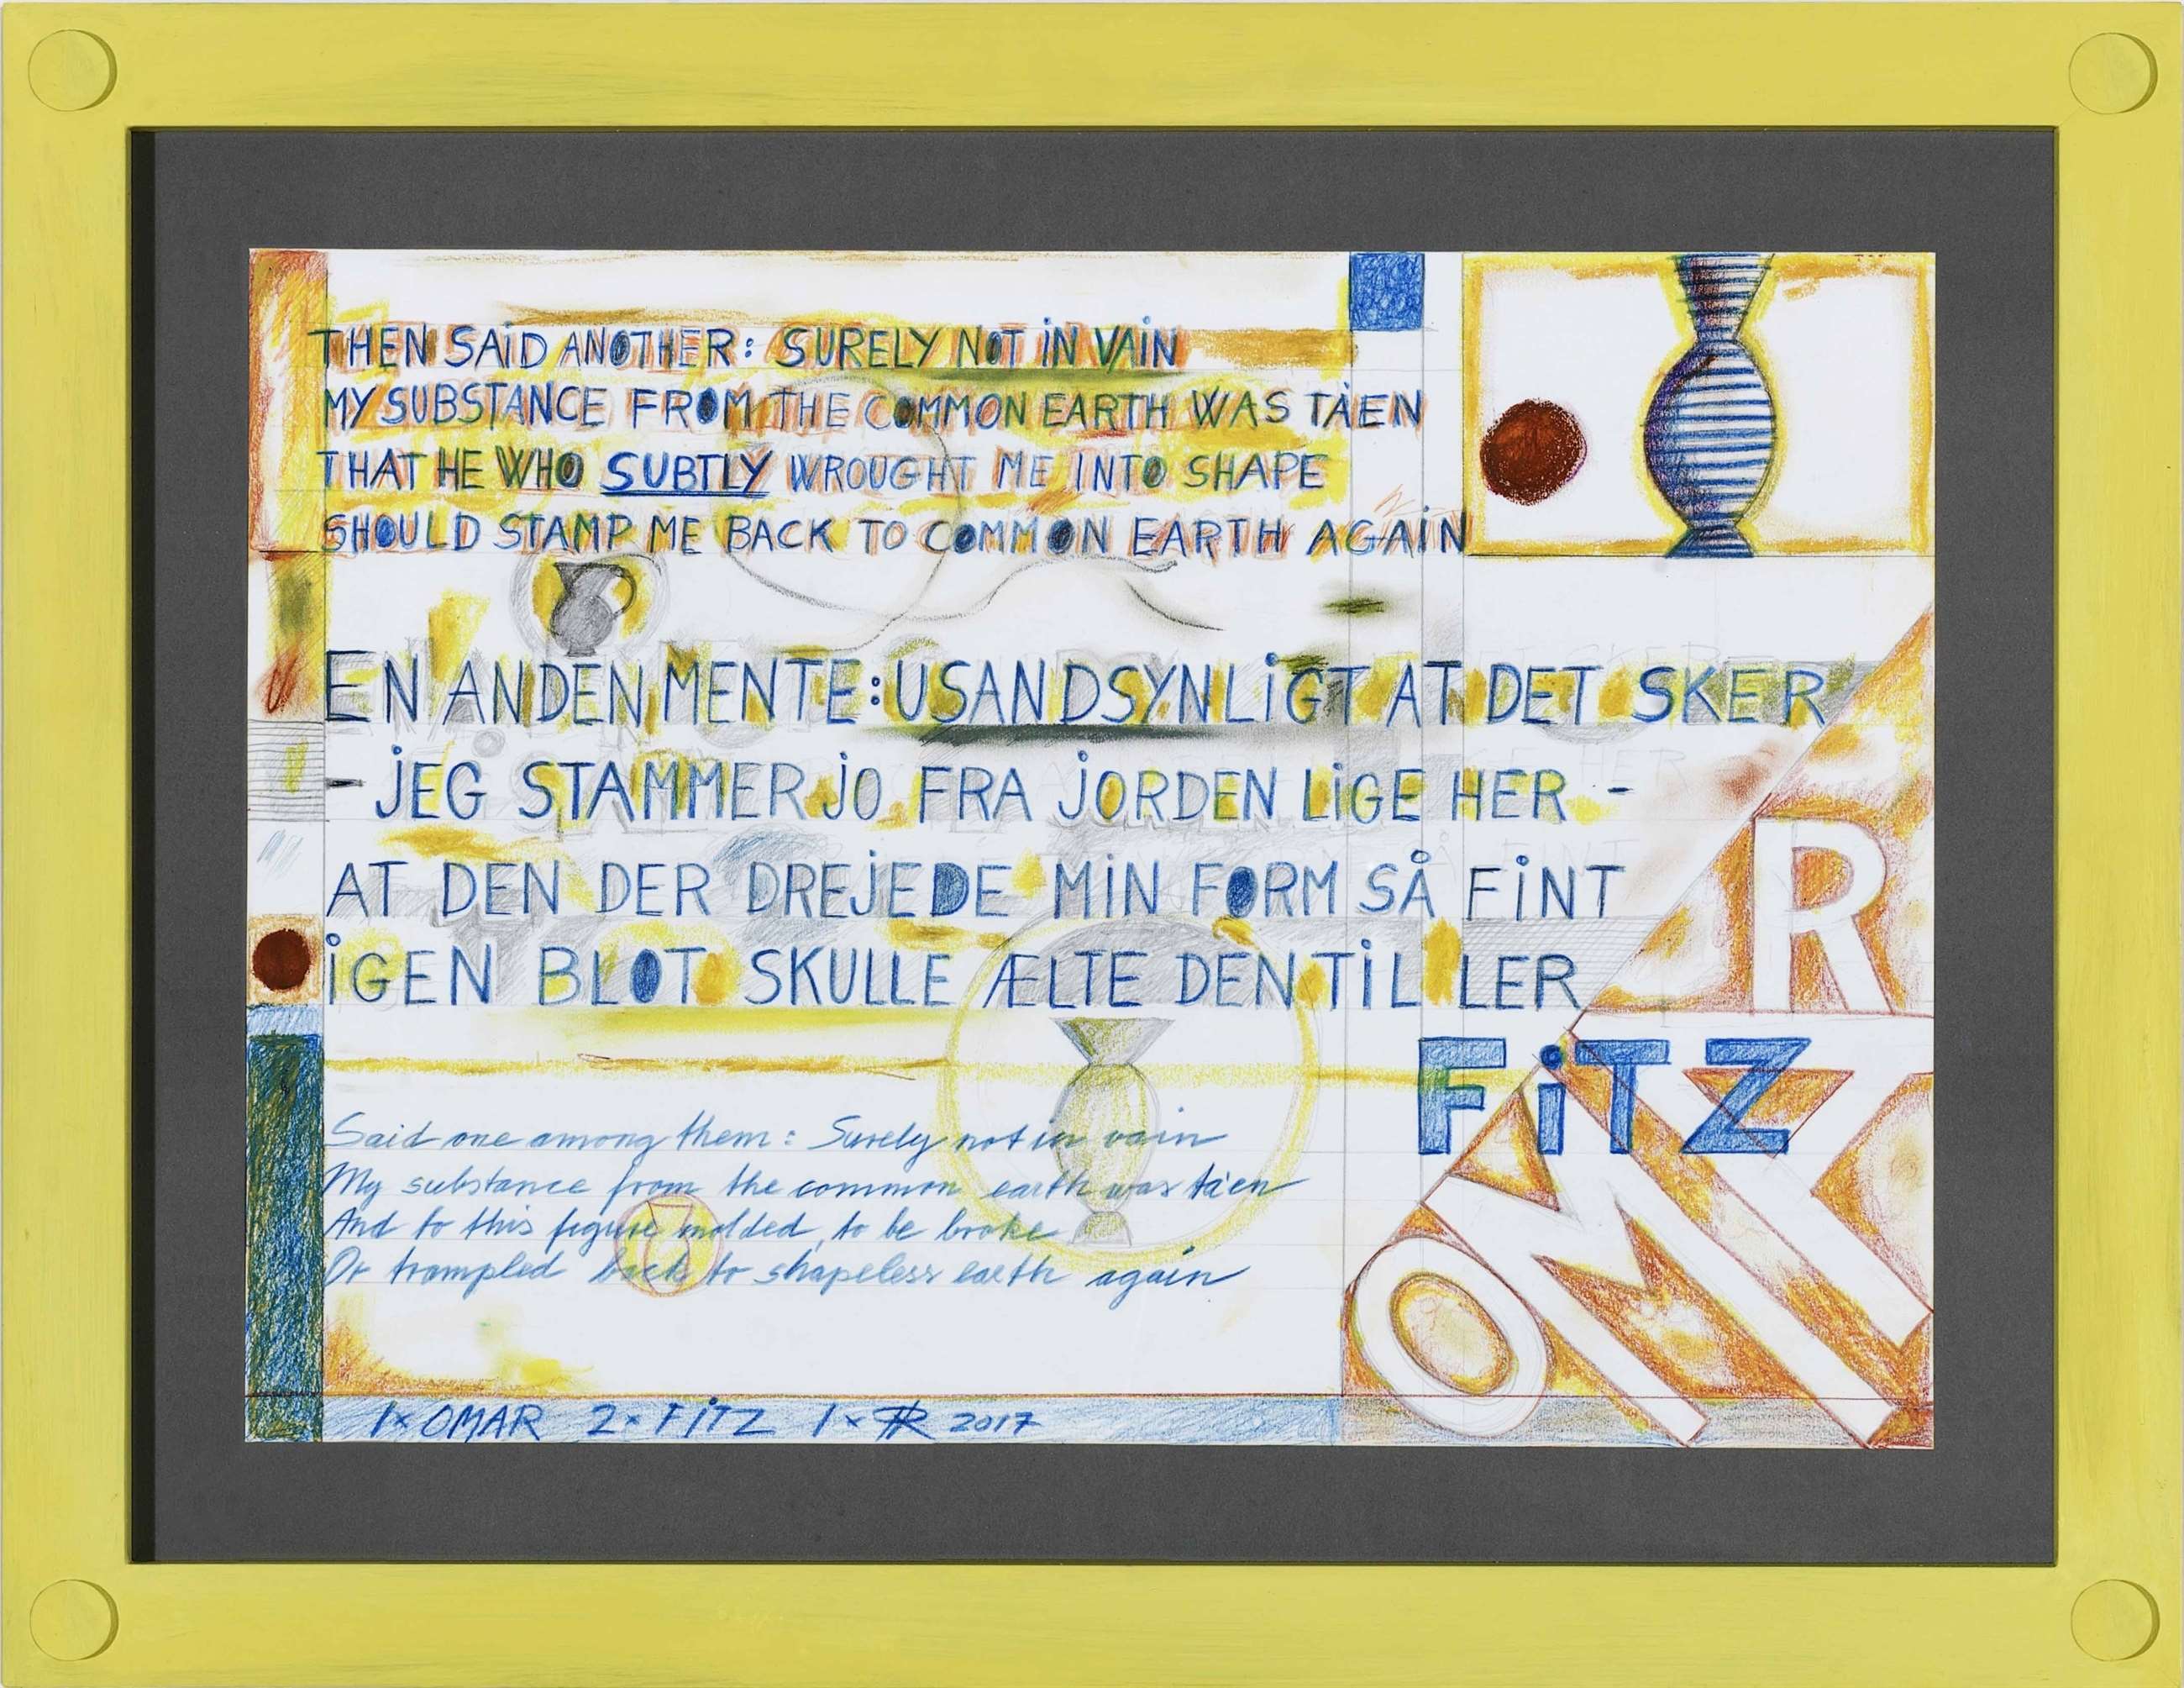 THEN SAiD ANOTHER: SURELY NOT iN VAiN
MY SUBSTANCE FROM THE COMMON EARTH WAS TA'EN
THAT HE WHO SUBTLY WROUGHT ME INTO SHAPE
SHOULD STAMP ME BACK TO COMMON EARTH AGAiN
EN ANDEN MENTE: USANDSYNLiGT AT DET SKER
- jEG STAMMER jO FRA jORDEN LiGE HER -
AT DEN DER DREjEDE MiN FORM SÅ FiNT
iGEN BLOT SKULLE ÆLTE DEN TiL LER
FiTZ
Said one among them: Surely not in vain
My substance from the common earth was ta'en
And to this figure molded, to be broke
Or trampled back to shapeless earth again
OM
R
1× OMAR 2× FiTZ 1× 2017